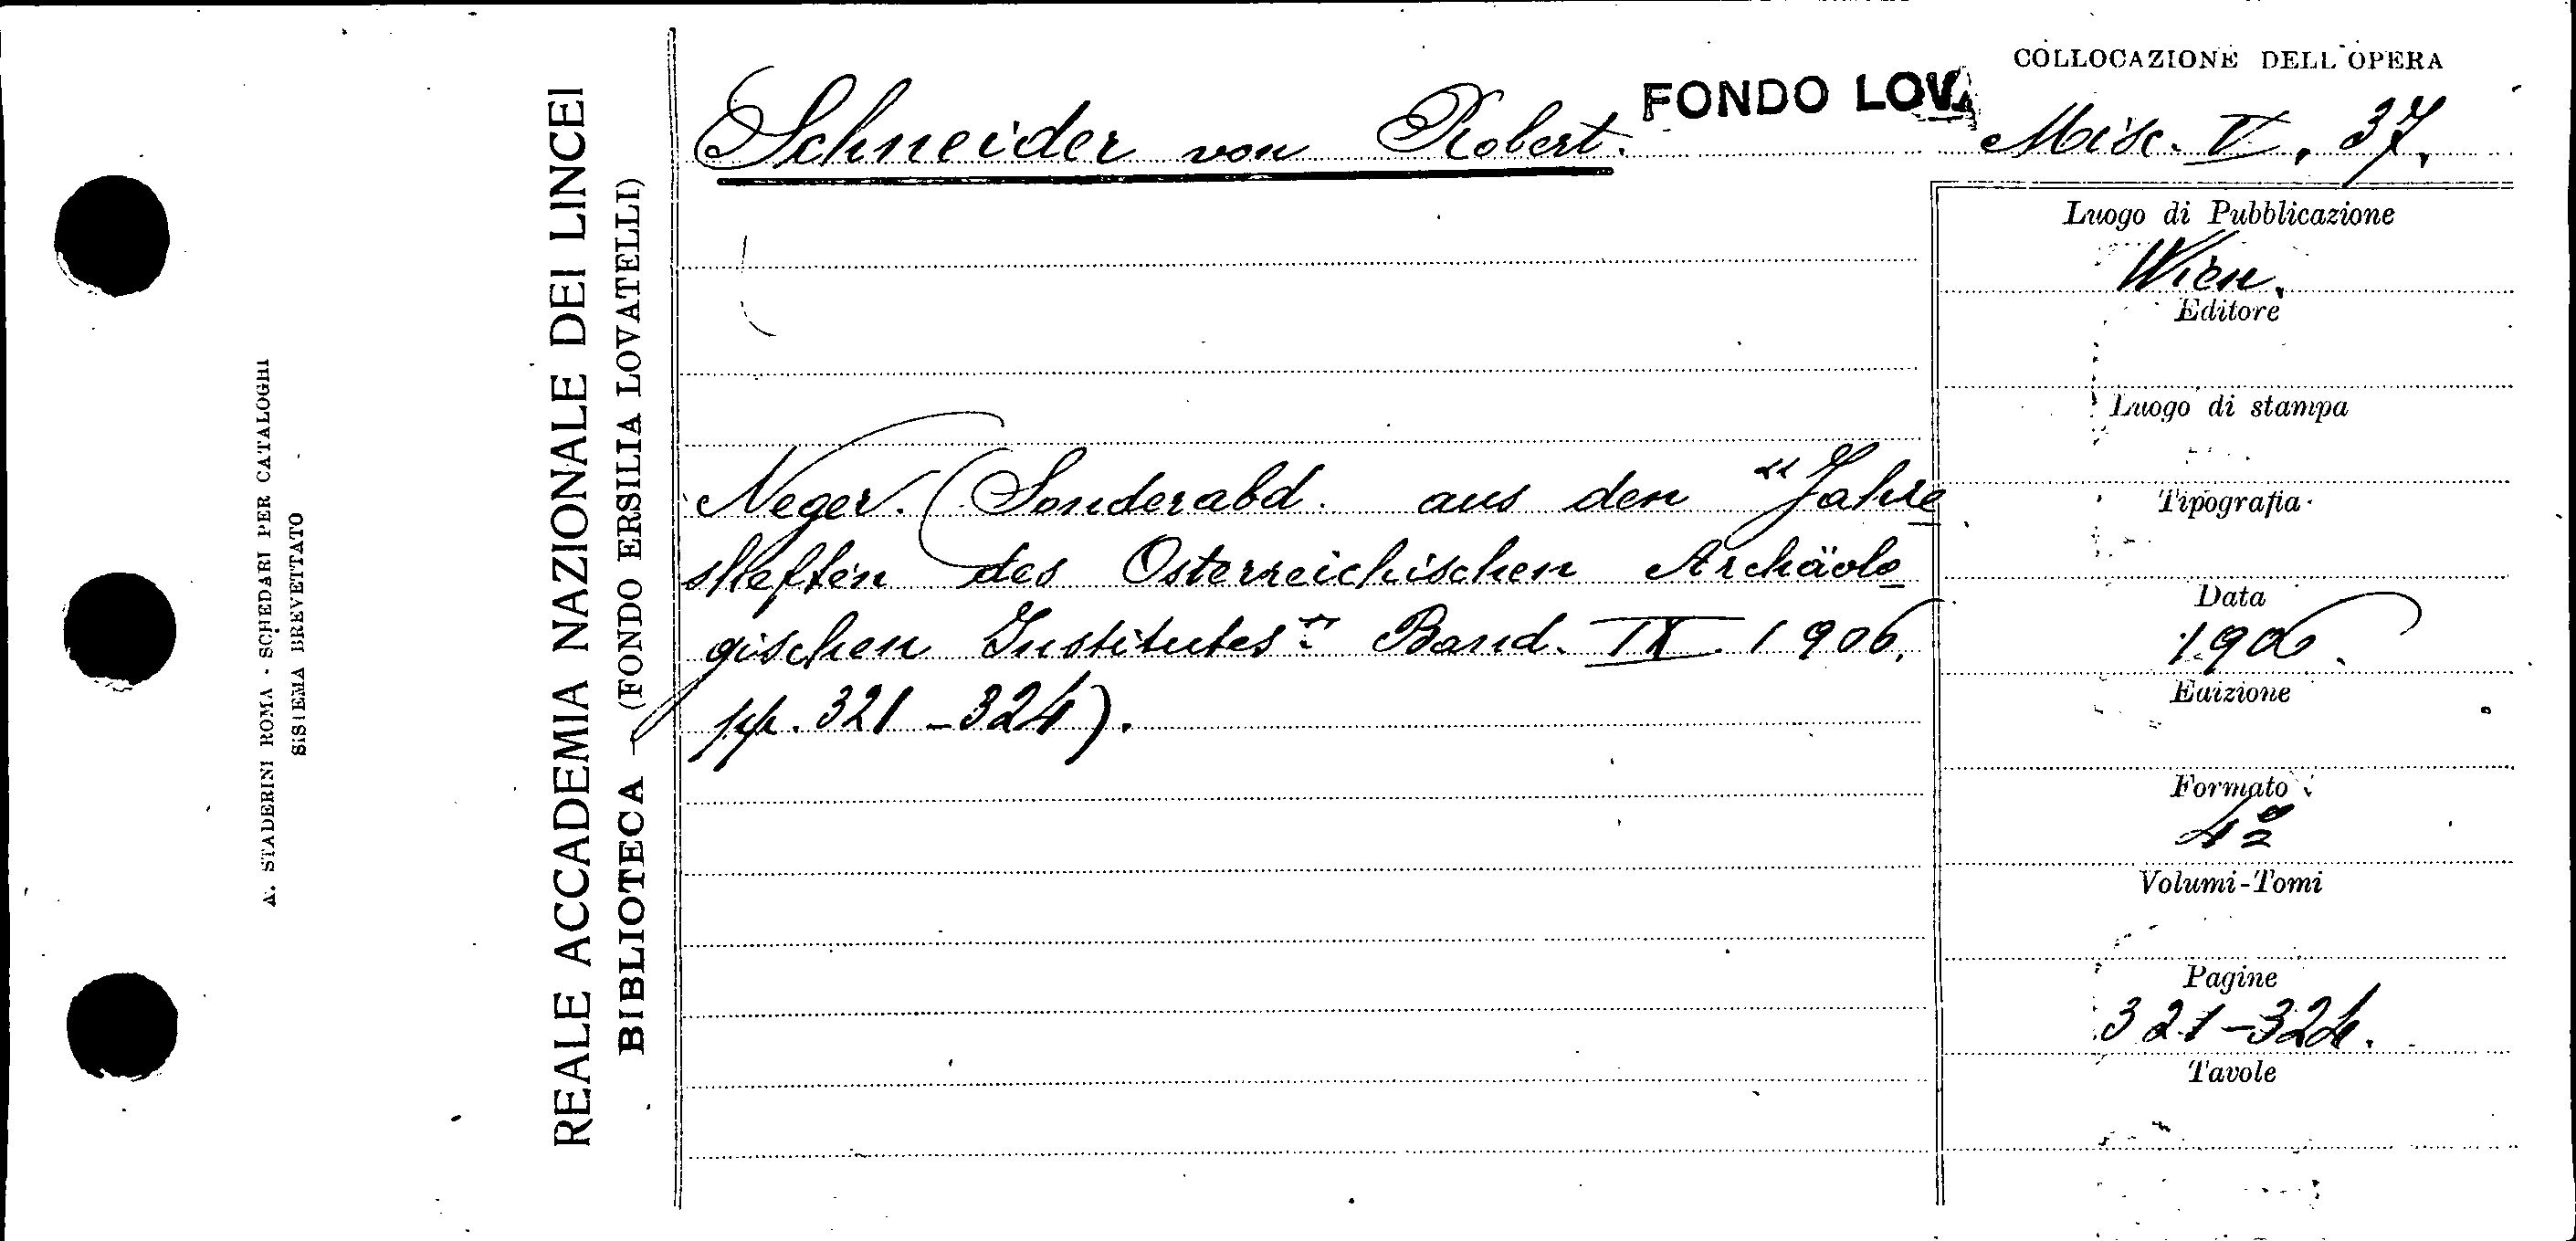 COLLOCAZIONE DELL'OPERA
FONDO LOV.
Schneider von Robert.
Misc. V, 37.
Neger. (Sonderabd. aus den "Jahre
sheften des Osterreichischen Archäolo
gischen Institutes" Band. IX. 1906.
pp. 321-324).
Luogo di Pubblicazione
Wien.
Editore
Luogo di stampa
Tipografia
Data
1906.
Edizione
Formato
4º
Volumi-Tomi
Pagine
321-324.
Tavole
REALE ACCADEMIA NAZIONALE DEI LINCEI
BIBLIOTECA - (FONDO ERSILIA LOVATELLI)
A. STADERINI ROMA - SCHEDARI PER CATALOGHI
SISTEMA BREVETTATO